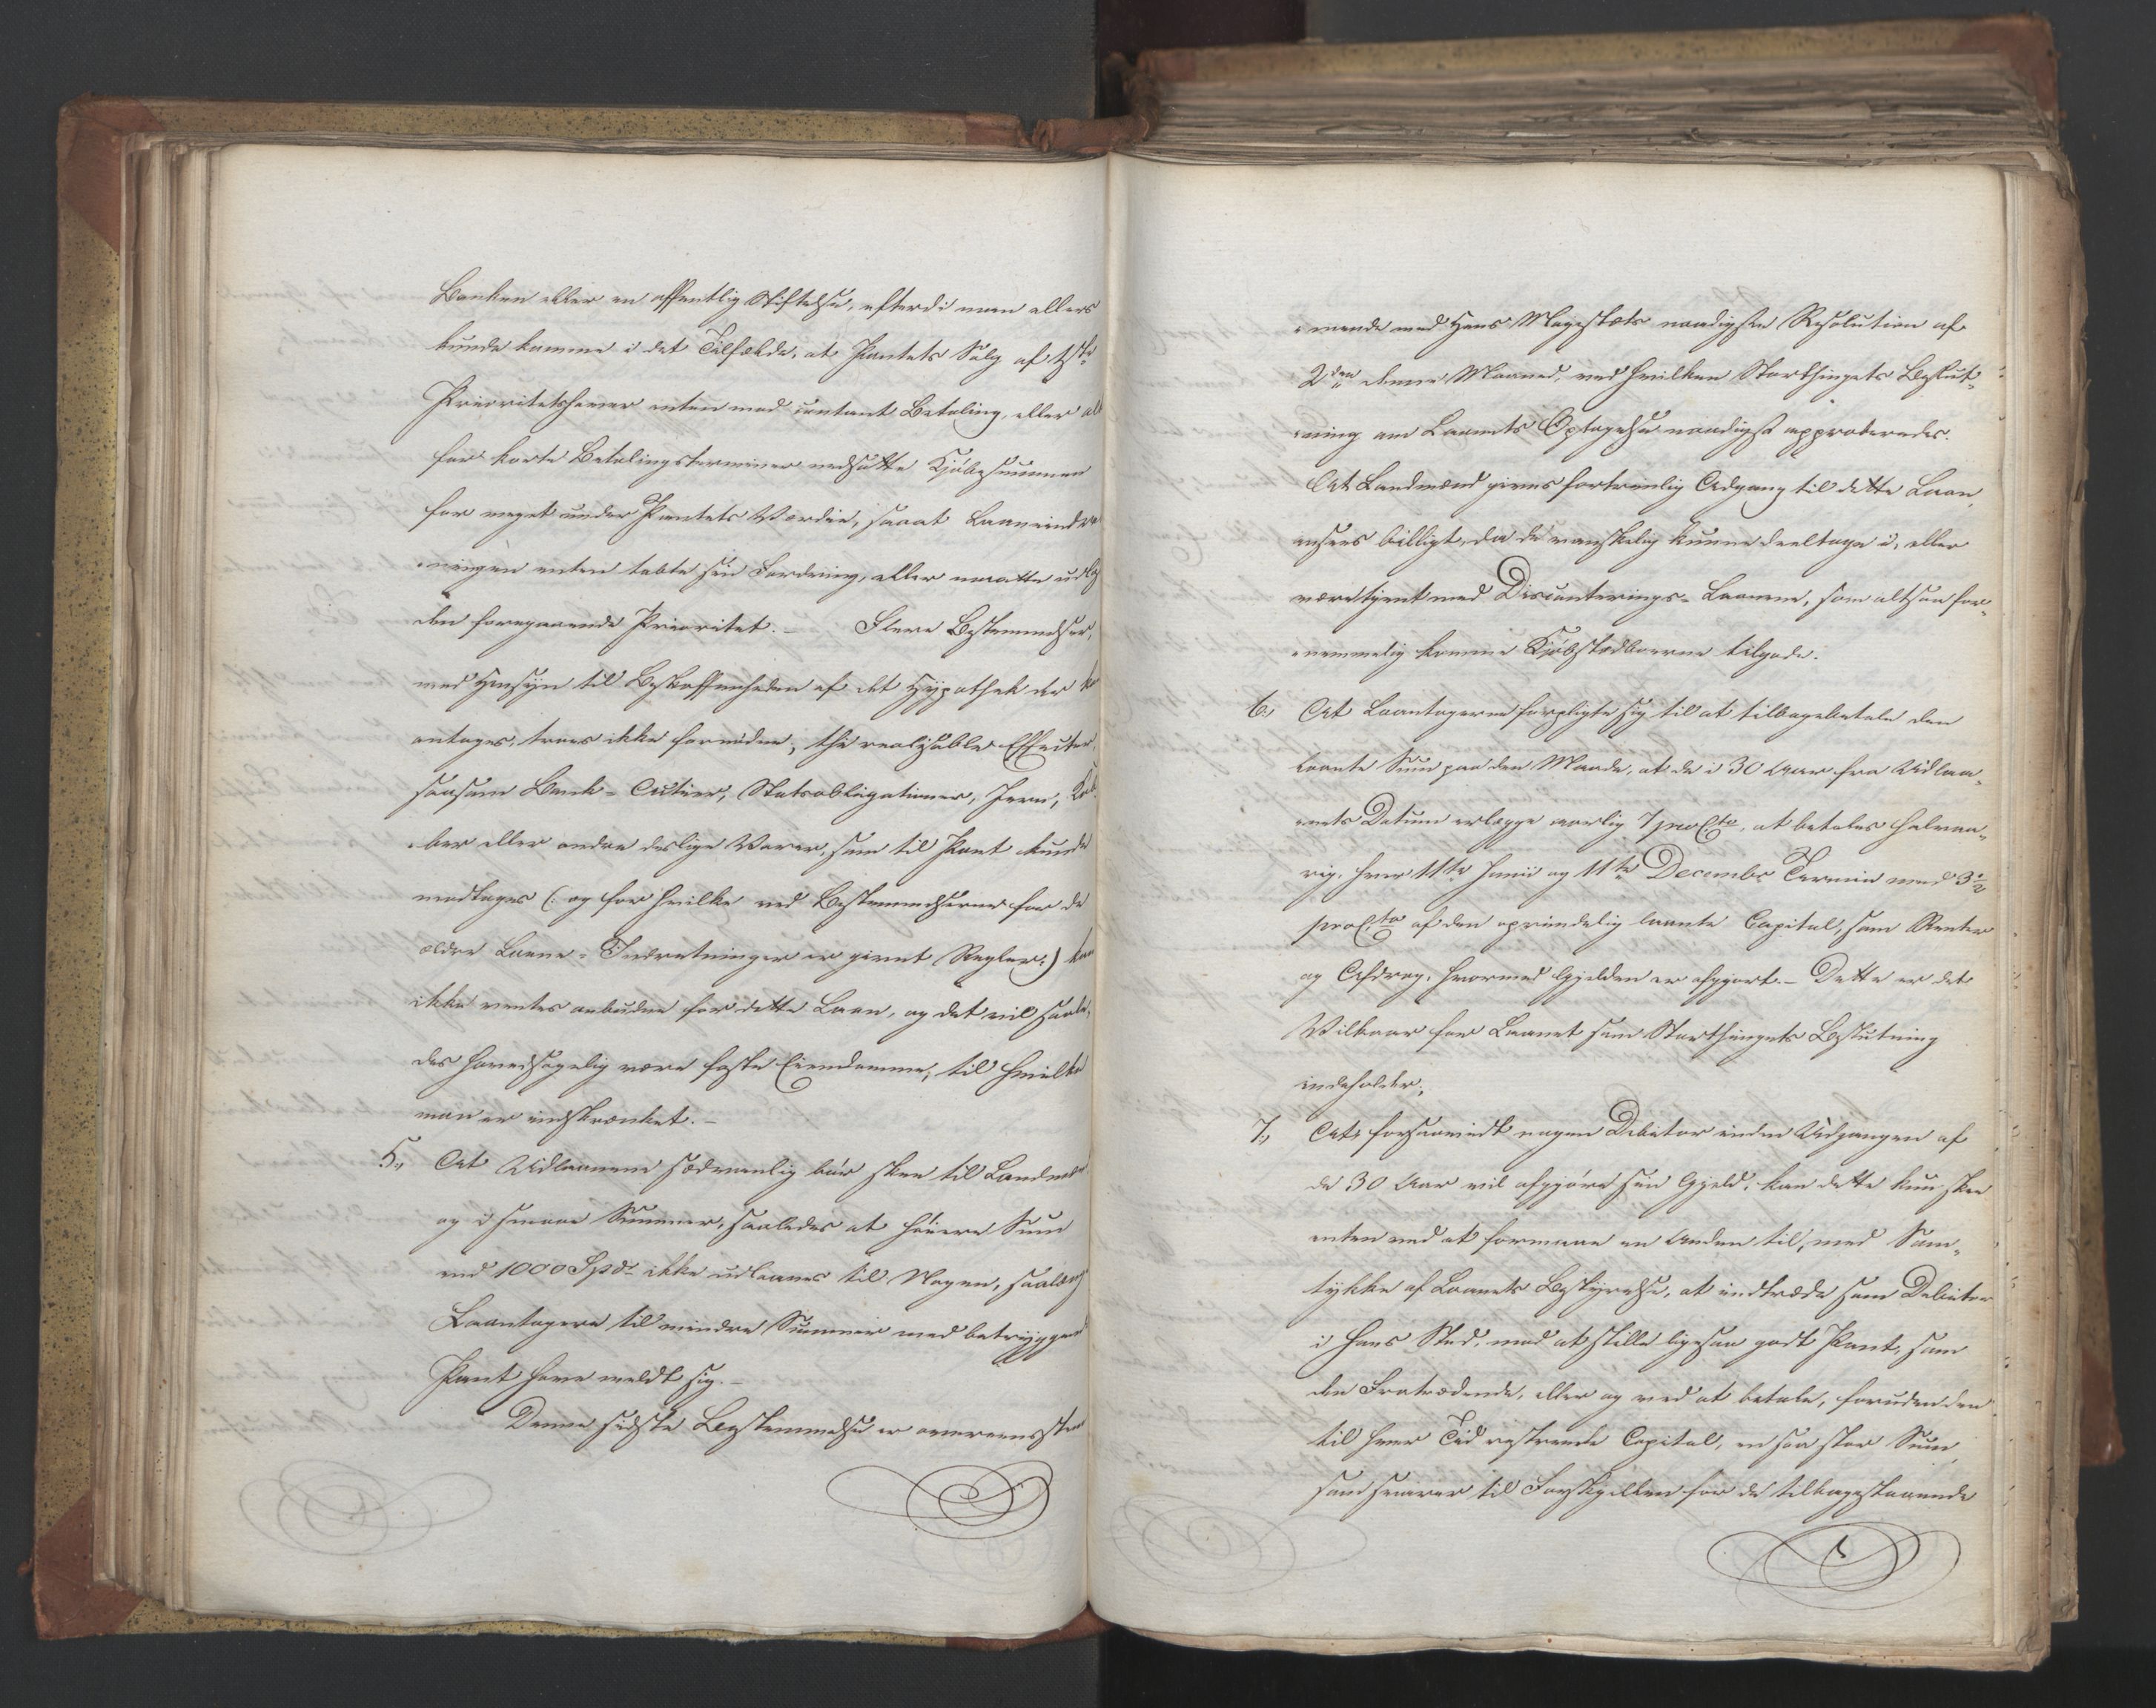 Banken eller en offentlig Stiftelse, efterdi man ellers
kunde komme i det Tilfælde, at Pantets Salg af 1ste
Prioritetshaver enten mod contant Betaling, eller
for korte Betalingsterminer nedsatte Kjøbesummen
for meget under Pantets Værdie, saa at Laaneindret
ningen enten tabte sin Fordring, eller maatte udløse
den foregaaende Prioritet. – Flere Bestemmelser,
med Hensyn til Beskaffenheden af det Hypothek der kan
antages, troes ikke fornødne, thi realisable Effecter,
saasom Bank-Actier, Statsobligationer, Jern, Kob
ber eller andre deslige Varer, som til Pant kunde
modtages (: og for hvilke ved Bestemmelserne for de
ældre Laane-Indretninger er givet Regler:) kan
ikke ventes anbudne for dette Laan, og det vil saale,
des hovedsagelig være faste Eiendomme, til hvilke
man er indskrænket. –
5., At Udlaanene sædvanlig bør skee til Landmænd
og i smaae Summer, saaledes at høiere Sum
end 1000 Spdr ikke udlaanes til Nogen, saalænge
Laantagere til mindre Summer med betryggende
Pant have meldt sig. –
Denne sidste Bestemmelse er overeensstem
mende med Hans Majestæts naadigste Resolution af
2den denne Maaned, ved hvilken Storthingets Beslut-
ning om Laanets Optagelse naadigst approberedes.
At Landmænd gives fortrinlig Adgang til dette Laan,
ansees billigt, da de vanskelig kunne deeltage i, eller
være tjent med Disconterings-Laanene, som altsaa for-
nemmelig komme Kjøbstædboerne tilgode.
6., At Laantagerne forpligte sig til at tilbagebetale den
laante Sum paa den Maade, at de i 30 Aar fra Udlaa-
nets Datum erlægge aarlig 7 pro Cto, at betales halvaa-
rig, hver 11te Junii og 11te Decembr Termin med 3½
pro Cto af den oprindelig laante Capital, som Renter
og Afdrag, hvormed Gjelden er afgjort. – Dette er det
Vilkaar for Laanet som Storthingets Beslutning
indeholder;
7., At, forsaavidt nogen Debitor inden Udgangen af
de 30 Aar vil afgjøre sin Gjeld, kan dette kun skee
enten ved at formaae en Anden til, med Sam-
tykke af Laanets Bestyrelse, at indtræde som Debitor
i hans Sted, mod at stille ligesaa godt Pant, som
den Fratrædende, eller og ved at betale, foruden den
til hver Tid resterende Capital, en saa stor Sum,
som svarer til Forskjellen for de tilbagestaaende